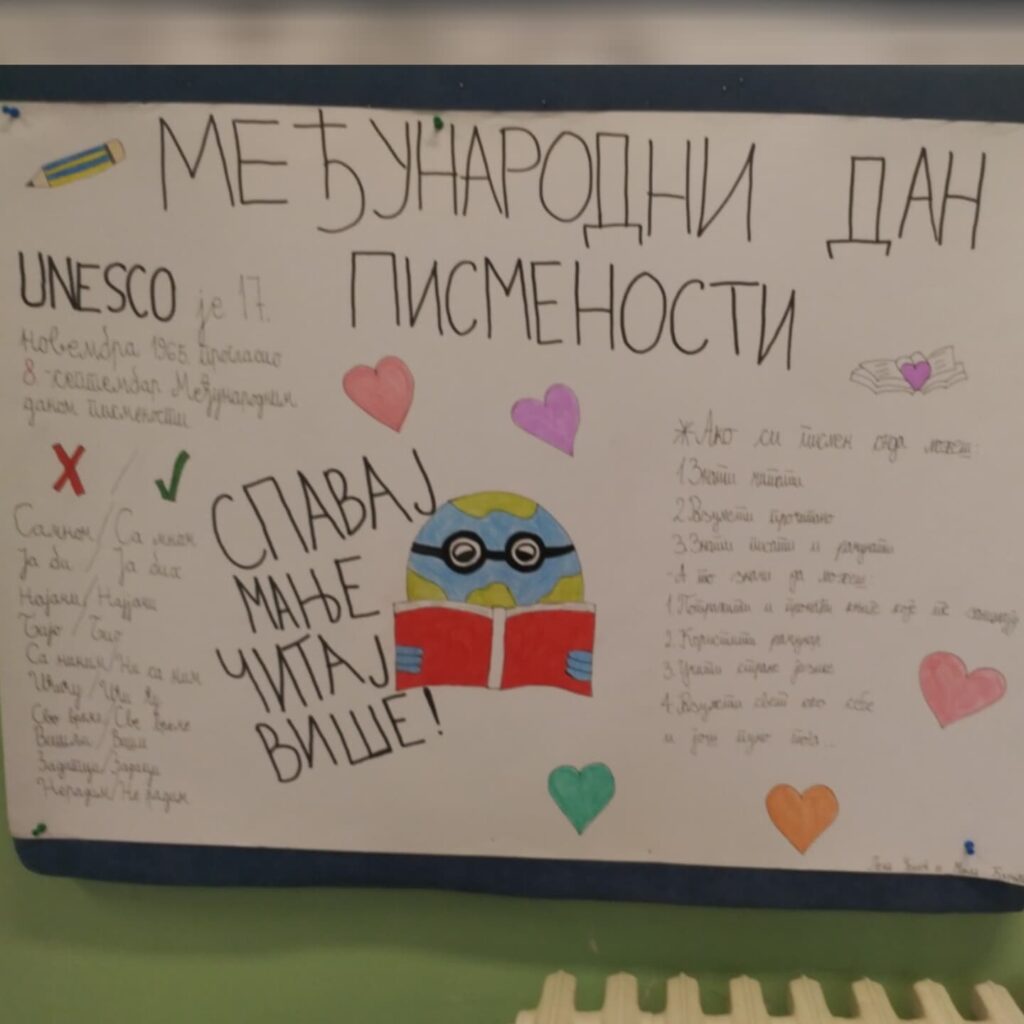 МЕЂУНАРОДНИ ДАН
ПИСМЕНОСТИ
UNESCO је 17.
новембра 1965. прогласио
8. септембар Међународним
даном писмености
X / ✓
Самном / Са мном
Ја би / Ја бих
Најачи / Најјачи
Са ники / Ни са ким
Задатца / Задаци
Нерадим / Не радим
СПАВАЈ
МАЊЕ
ЧИТАЈ
ВИШЕ!
*Ако си писмен онда можеш:
1. Знати читати
2. Разумети прочитано
3. Знати писати и рачунати
-А то значи да можеш:
1. Потражити и пронаћи књиге које те занимају
2. Користити рачунар
3. Учити стране језике
4. Разумети свет око себе
и још пуно тога...